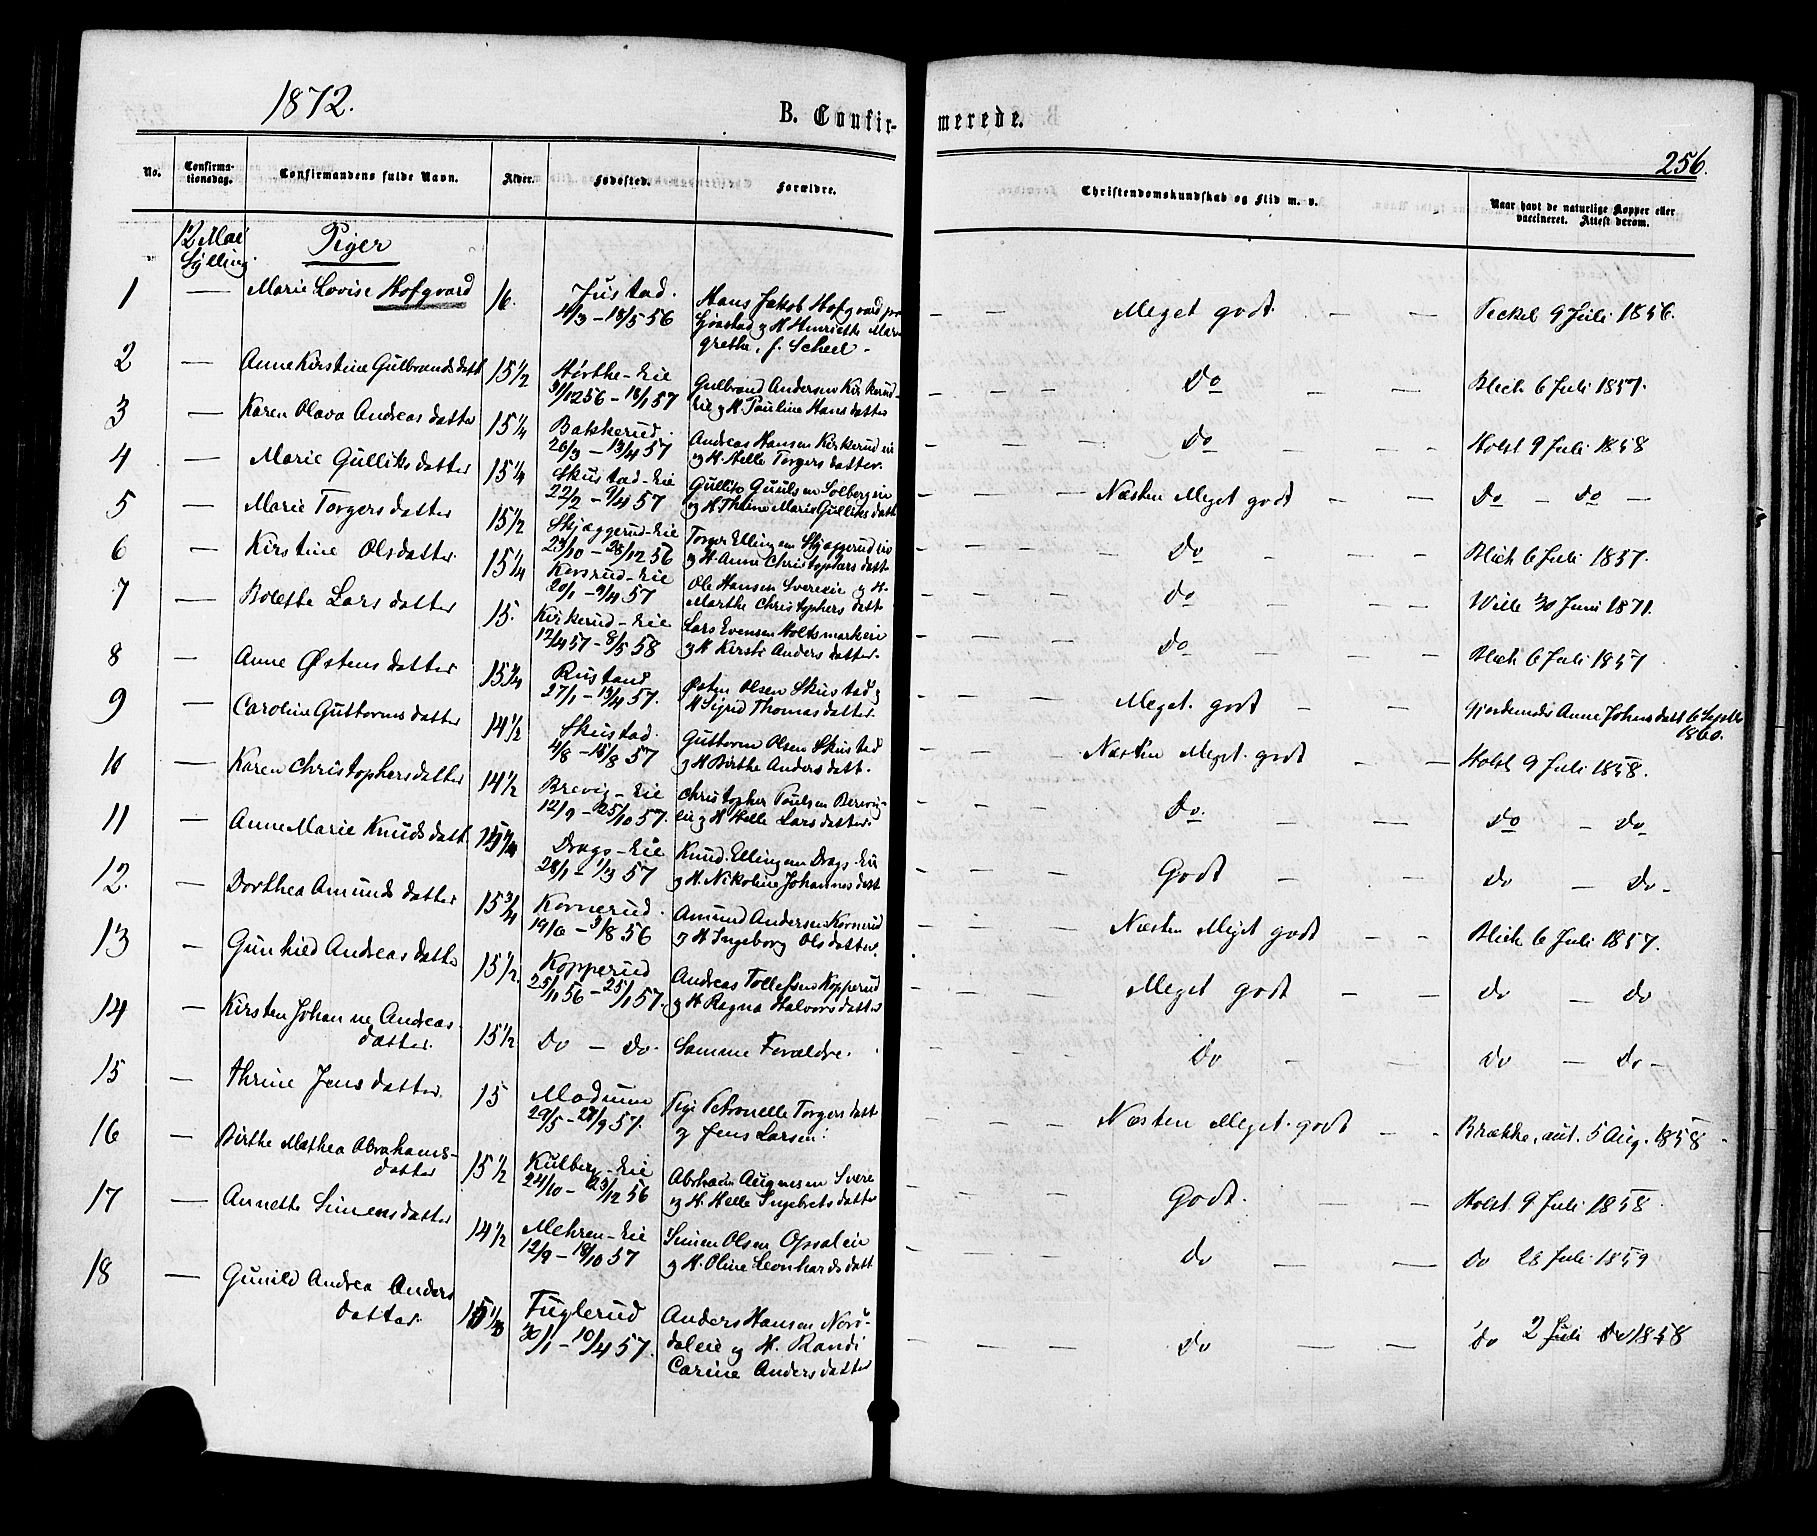 1872.
B. Confirmerede.
256.
No.
Confirmationsdag.
Confirmandens fulde Navn.
Alder.
Fødested.
Forældre.
Christendomskundskab og Flid m. v.
Naar havt de naturlige Kopper eller vaccineret. Attest derom.
12 Mai Sylling
Piger
1 — Marie Lovise Hofgaard 16. Justad. 4/3 – 18/5 56 Hans Jakob Hofgaard paa
Justad og H. Henriette Margrethe, f. Scheel – — — Meget godt — — 9 Juli 1856.
2 — Anne Kirstine Gulbrandsdatt 15 1/2 Hørthe-Eie 31/12 56 – 18/1 57 Gulbrand Andersen Kirkerud-
eie og H. Pauline Hansdatter — — — Do — — Blich 6 Juli 1857.
3 — Karen Olava Andreasdatter 15 1/4 Bakkerud. 26/3 – 13/4 57 Andreas Hansen Kirkerudeie
og H. Helle Torgersdatter. — — — Do — — Holst 9 Juli 1858
4 — Marie Gulliksdatter 15 1/4 Skustad-Eie 22/2 – 9/4 57 Gullik Guulsen Solbergeie
og H. Thrine Marie Gulliksdatt — — — Næsten Meget godt — — Do – Do –
5 — Marie Torgersdatter 15 1/2 Skjæggerud-Eie 23/10 – 28/12 56 Torger Ellingsen Skjæggerudeie
og H. Anne Christophersdatt — — — Do — — Blich 6 Juli 1857.
6 — Kirstine Olsdatter. 15 1/4 Korsrud-Eie 20/1 – 9/4 57 Ole Hansen Svereeie og H.
Marthe Christophersdatt — — — Do — — Wille 30 Juni 1871.
7 — Bolette Larsdatter 15. Kirkerud-Eie 12/4 57 – 8/5 58 Lars Evensen Holtsmarkeie
og H. Kirsti Andersdatter. — — — Do — — Blich 6 Juli 1857
8 — Anne Østensdatter 15 1/4 Rustand 27/1 – 13/4 57. Østen Olsen Skustad og
H. Sigrid Thomasdatter. — — — Meget godt — Gjordemoder Anne Johansdatt 6 Septbr 1860.
9 — Caroline Guttormsdatter 14 1/2 Skustad. 4/8 – 15/8 57 Guttorm Olsen Skustad
og H. Birthe Andersdatt. — — — Næsten Meget godt — — Holst 9 Juli 1858.
10 — Karen Christophersdatter 14 1/2 Brevig-Eie 12/9 – 25/10 57. Christopher Paulsen Berevig-
eie og H. Helle Larsdatter. — — — Do. — — Do – Do
11 — Anne Marie Knudsdatt. 15 1/4 Drags-Eie 28/1 – 1/3 57 Knud Ellingsen Drags-Eie
og H. Nikoline Johannesdatt — — — Godt — — Do – Do –
12. — Dorthea Amundsdatter 15 3/4 Kornerud. 19/6 – 3/8 56 Amund Andersen Kornerud
og H. Ingeborg Olsdatter. — — — Næsten Meget godt – – Blich 6 Juli 1857.
13 — Gunhild Andreasdatter 15 1/2. Kopperud 25/11 56 – 25/1 57. Andreas Tollefsen Kopperud
og H. Ragna Halvorsdatter — — — Meget godt — — Do – Do
14 — Kirsten Johanne Andreas-
datter. 15 1/2 Do – Do. Samme Forældre. — — — Do — — Do – Do –
15 — Thrine Jensdatter. 15 Modum 29/5 – 27/9 57. Pige Petronelle Torgersdatt
og Jens Larsen. — — — Næsten Meget godt – – Brække, aut. 5 Aug. 1858
16 — Birthe Mathea Abrahams-
datter 15 1/2 Kulberg-Eie 24/10 – 23/12 56 Abraham Augensen Svere
og H. Helle Ingebretsdatter — — — Godt. — — Holst 9 Juli 1858.
17 — Annette Simensdatter 14 1/2 Mehren-Eie 12/9 – 18/10 57 Simen Olsen Opsaleie
og H. Oline Leonhardsdatt — — — Do — — Do 28 Juli 1859
18 — Gunild Andrea Anders
datter. 15 Fuglerud 30/1 – 10/4 57. Anders Hansen Nor-
daleie og H. Randi
Carine Andersdatter — — — Do — — Do 2 Juli 1858